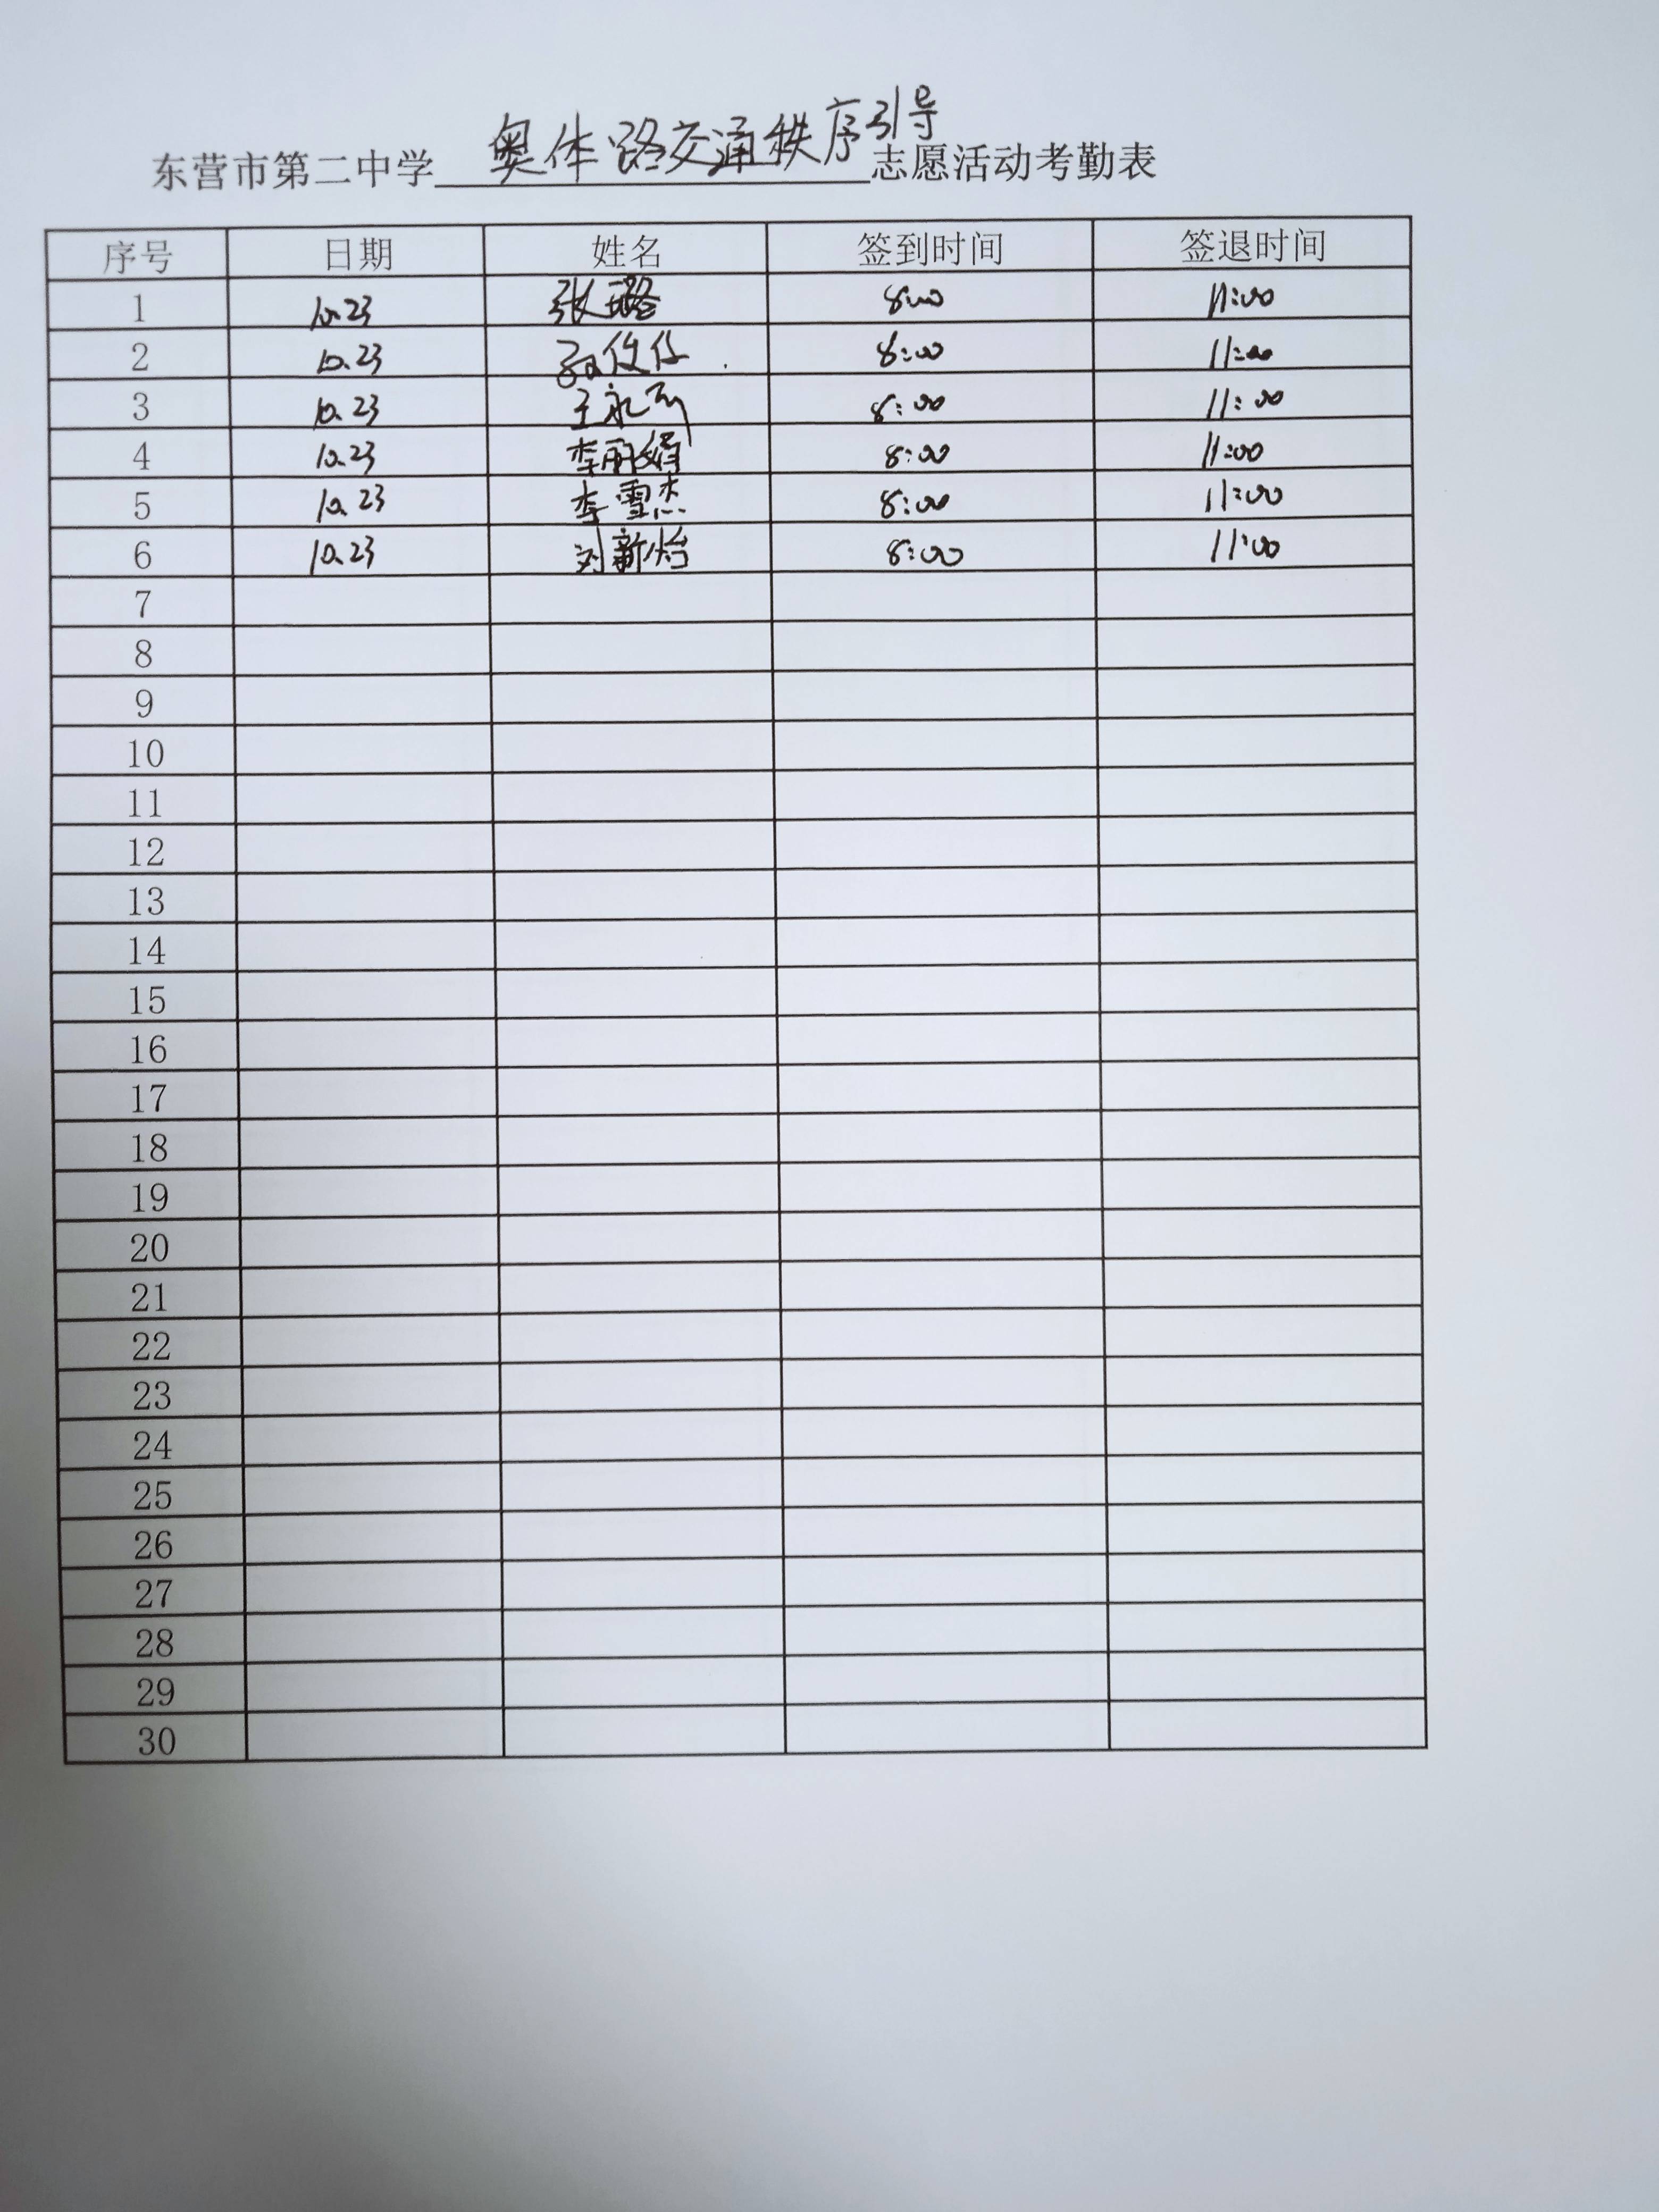 东营市第二中学奥体路交通秩序引导志愿活动考勤表
序号 日期 姓名 签到时间 签退时间
1 10.23 张璐 8:00 11:00
2 10.23 8:00 11:00
3 10.23 王永 8:00 11:00
4 10.23 李丽娟 8:00 11:00
5 10.23 李雪杰 8:00 11:00
6 10.23 刘新怡 8:00 11:00
7
8
9
10
11
12
13
14
15
16
17
18
19
20
21
22
23
24
25
26
27
28
29
30